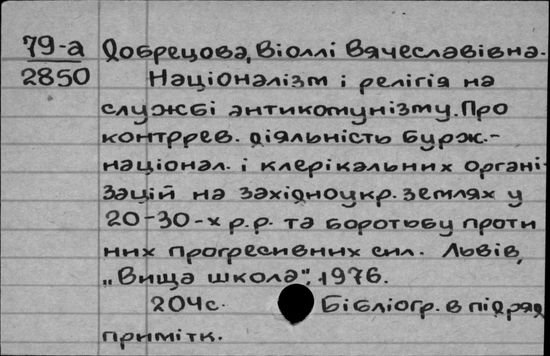 79-а Добрецова, Віоллі Вячеславівна.
2850 Націоналізм і релігія на
службі антикомунізму. Про
контррев. діяльність бурж.-
націонал. і клерікальних органі-
зацій на західноукр. землях у
20-30-х р.р. та боротьбу проти
них прогресивних сил. Львів,
„Вища школа", 1976.
204с. Бібліогр. в підряд
примітк.